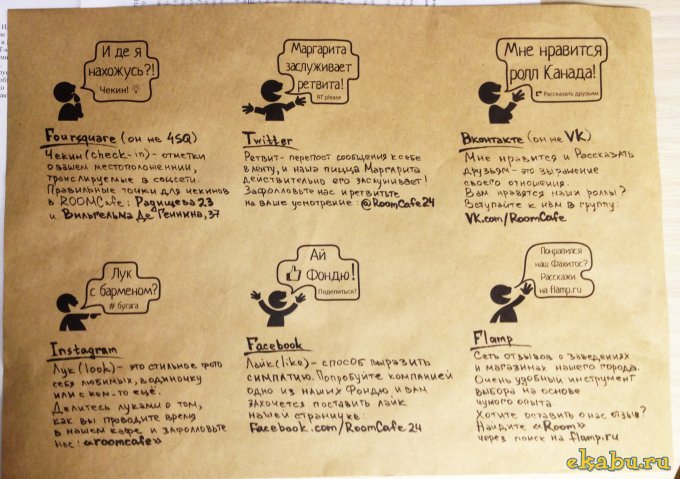 И де я
нахожусь?!
Чекин!
Foursquare (он не 4SQ)
Чекин (check-in) - отметки
о вашем местоположении,
транслируемые в соцсети.
Правильные точки для чекинов
в ROOMCafe: Радищева 23
и Вильгельма Де Геннина, 37
Маргарита
заслуживает
ретвита!
RT please
Twitter
Ретвит - перепост сообщения к себе
в ленту, и наша пицца Маргарита
действительно его заслуживает!
Зафолловьте нас и ретвитьте
на ваше усмотрение: @RoomCafe24
Мне нравится
ролл Канада!
Рассказать друзьям
Вконтакте (он не VK)
Мне нравится и Рассказать
друзьям - это выражение
своего отношения.
Вам нравятся наши роллы?
Вступайте к нам в группу:
VK.com/RoomCafe
Лук
с барменом?
# бугага
Instagram
Лук (look) - это стильное фото
себя любимых, в одиночку
или с кем-то ещё.
Делитесь луками о том,
как вы проводите время
в нашем кафе и зафолловьте
нас: «roomcafe»
Ай
Фондю!
Поделиться?
Facebook
Лайк (like) - способ выразить
симпатию. Попробуйте компанией
одно из наших Фондю и вам
захочется поставить лайк
нашей страничке:
Facebook.com/RoomCafe24
Понравился
наш Фахитос?
Расскажи
на flamp.ru
Flamp
Сеть отзывов о заведениях
и магазинах нашего города.
Очень удобный инструмент
выбора на основе
чужого опыта
Хотите оставить о нас отзыв?
Найдите «Room»
через поиск на flamp.ru
ekabu.ru